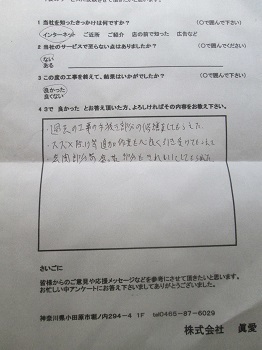 1 当社を知ったきっかけは何ですか？ （〇で囲んで下さい）
インターネット ご近所 ご紹介 店の前で知った 広告など
2 当社のサービスで至らない点はありましたか？ （〇で囲んで下さい）
ない
ある
3 この度の工事を終えて、結果はいかがでしたか？ （〇で囲んで下さい）
良かった
良くない
4 3で 良かった とお答え頂いた方、よろしければその内容をお教え下さい。
・過去の工事の手抜き部分の修繕までしてもらえた。
さいごに
皆様からのご意見や応援メッセージなどを参考にさせて頂きたいと思います。
お忙しい中アンケートにお答え下さいましてありがとうございました。
神奈川県小田原市堀ノ内294-4 1F tel0465-87-6029
株式会社 眞愛